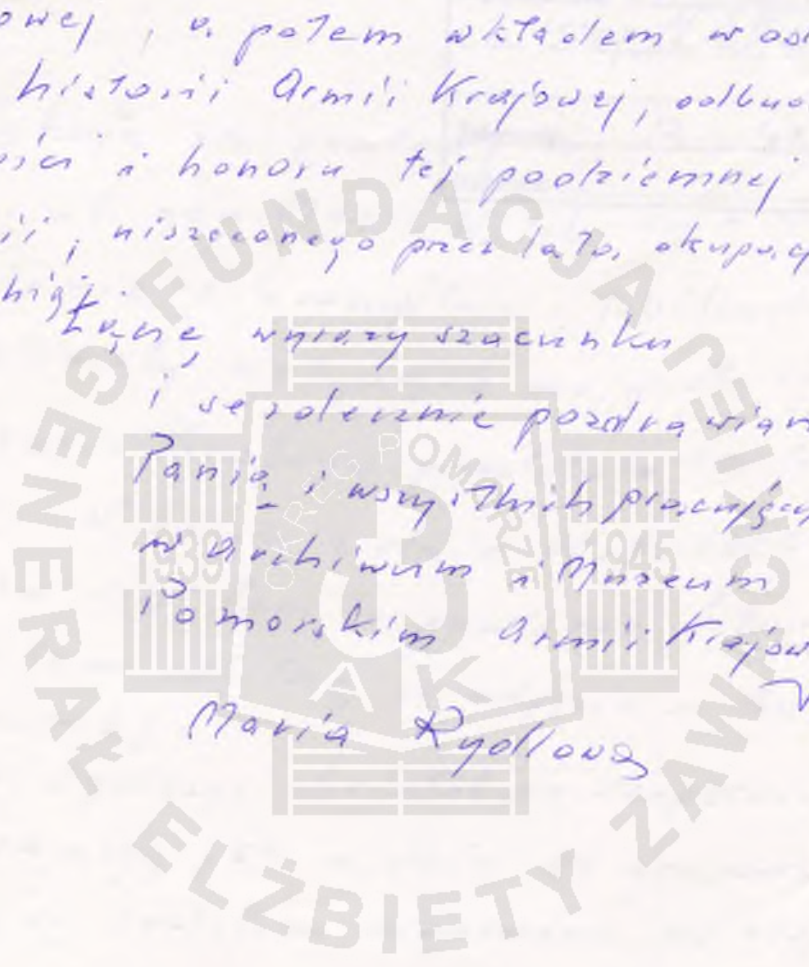 owej, a potem wkładem w od
historii Armii Krajowej, odbud
ości i honoru tej podziemnej
ii, niszczonego przez lata, okupacj
Łączę wyrazy szacunku
i serdecznie pozdrawiam
Panią i wszystkich pracujących
w Archiwum i Muzeum
Pomorskim Armii Krajow
Maria Rydlowa
FUNDACJA
GENERAŁ ELŻBIETY ZAWACKIEJ
OKRĘG POMORZE
1939 1945
AK